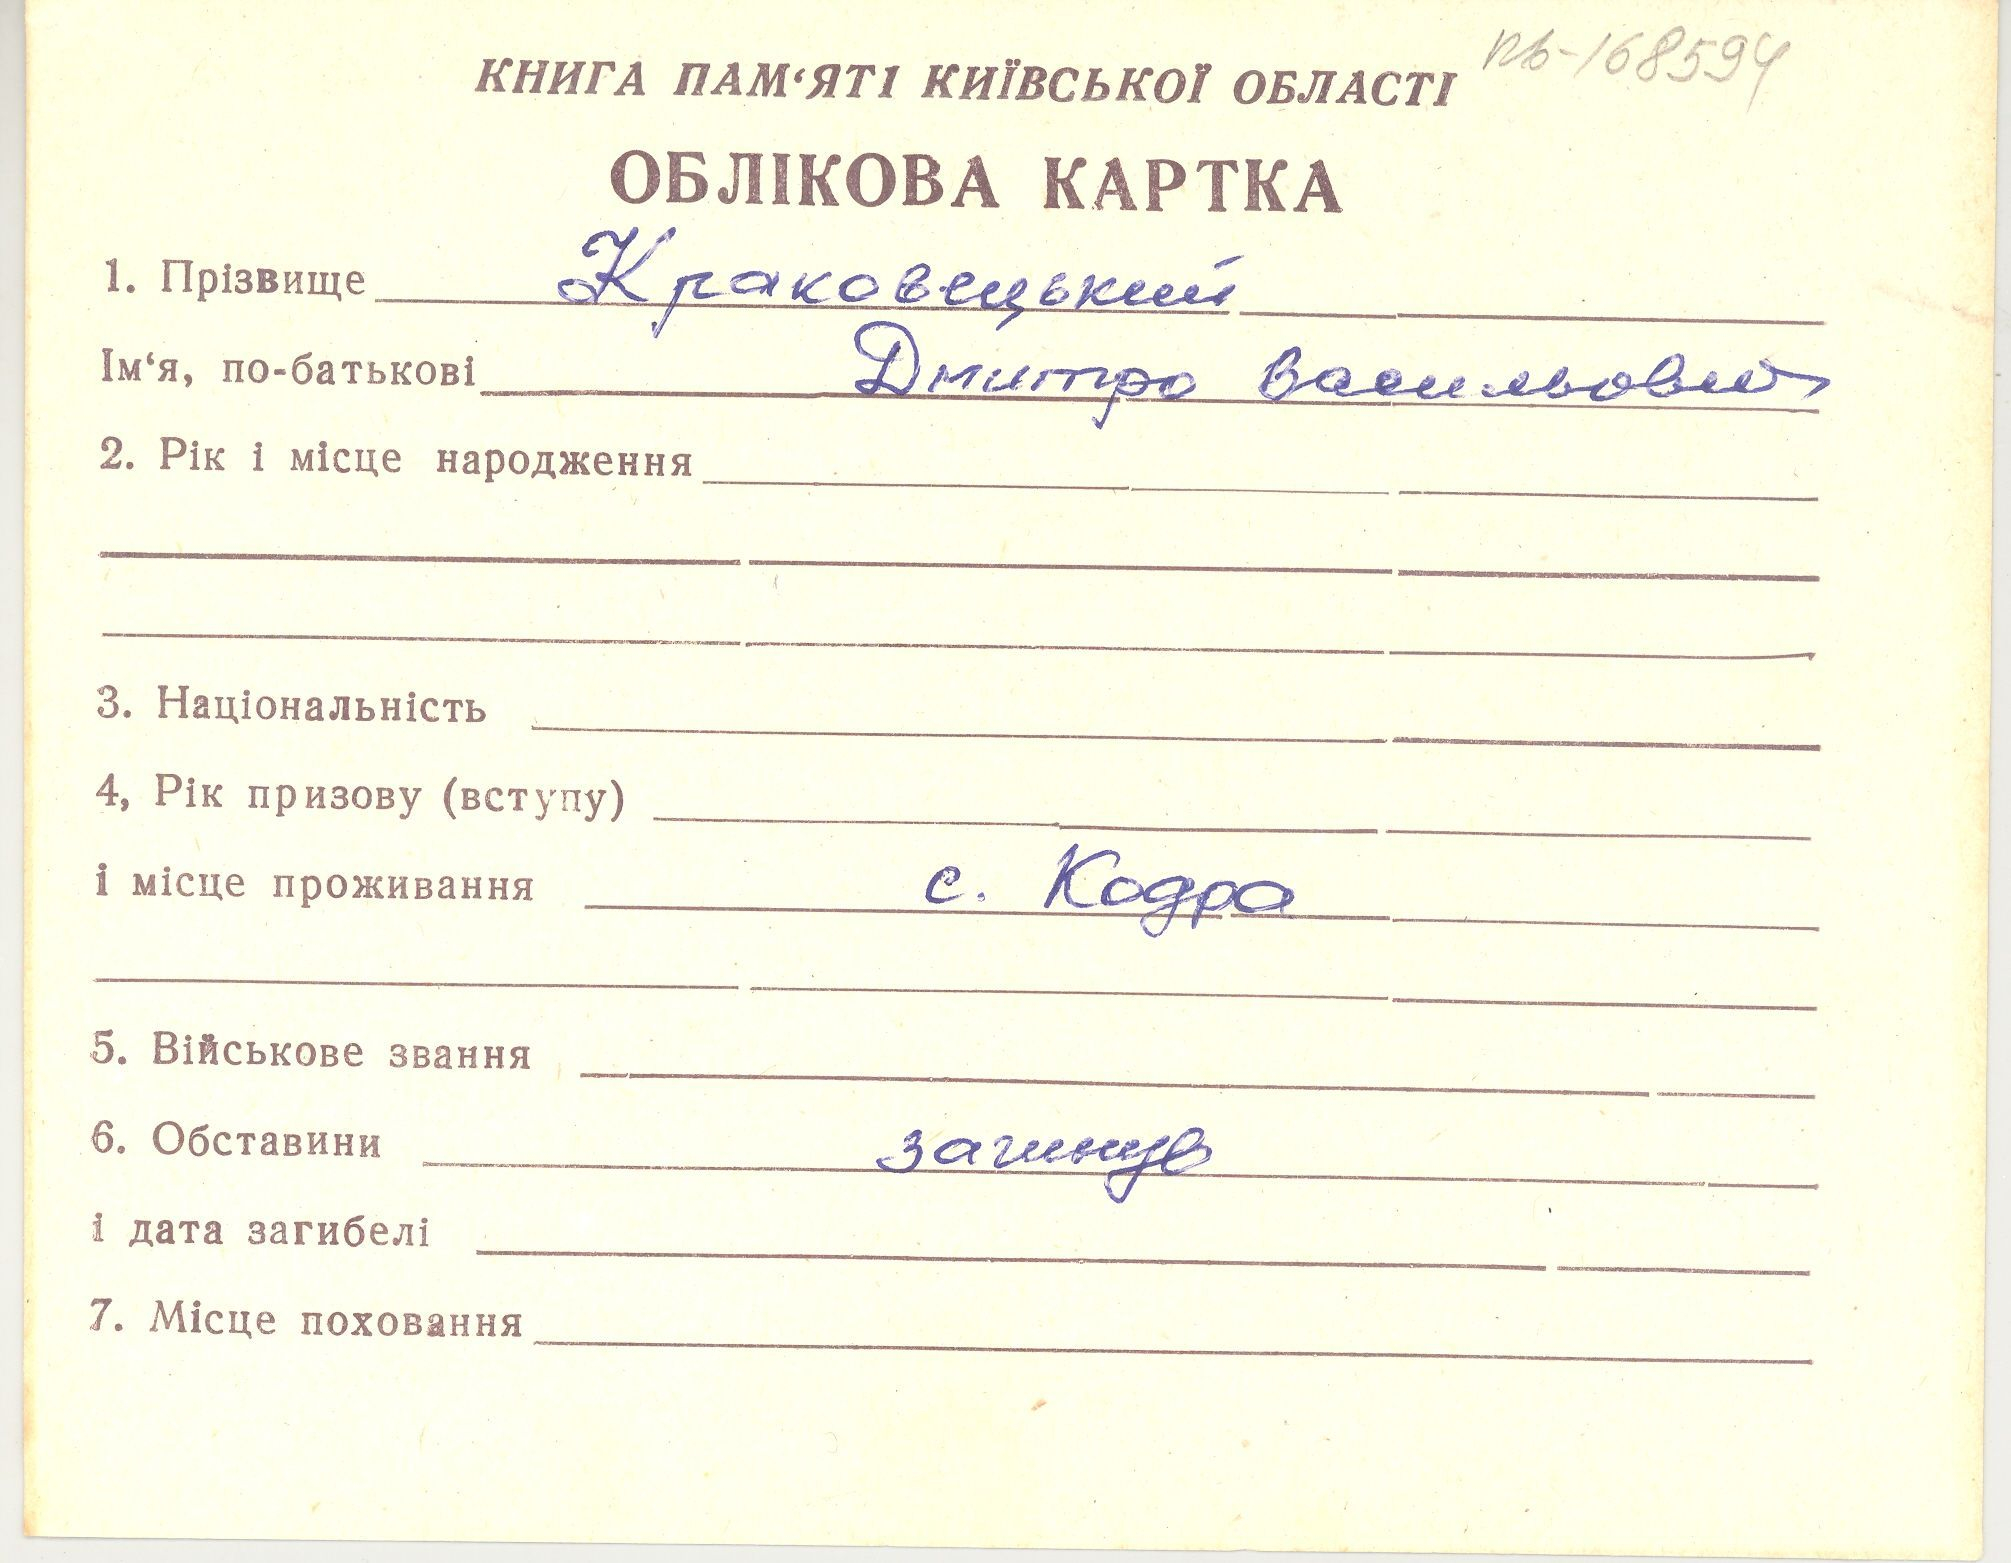 пв-168594
КНИГА ПАМ‘ЯТІ КИЇВСЬКОЇ ОБЛАСТІ
ОБЛІКОВА КАРТКА
1. Прізвище Краковецький
Ім‘я, по-батькові Дмитро Васильович
2. Рік і місце народження
3. Національність
4, Рік призову (вступу)
і місце проживання с. Кодра
5. Військове звання
6. Обставини загинув
і дата загибелі
7. Місце поховання